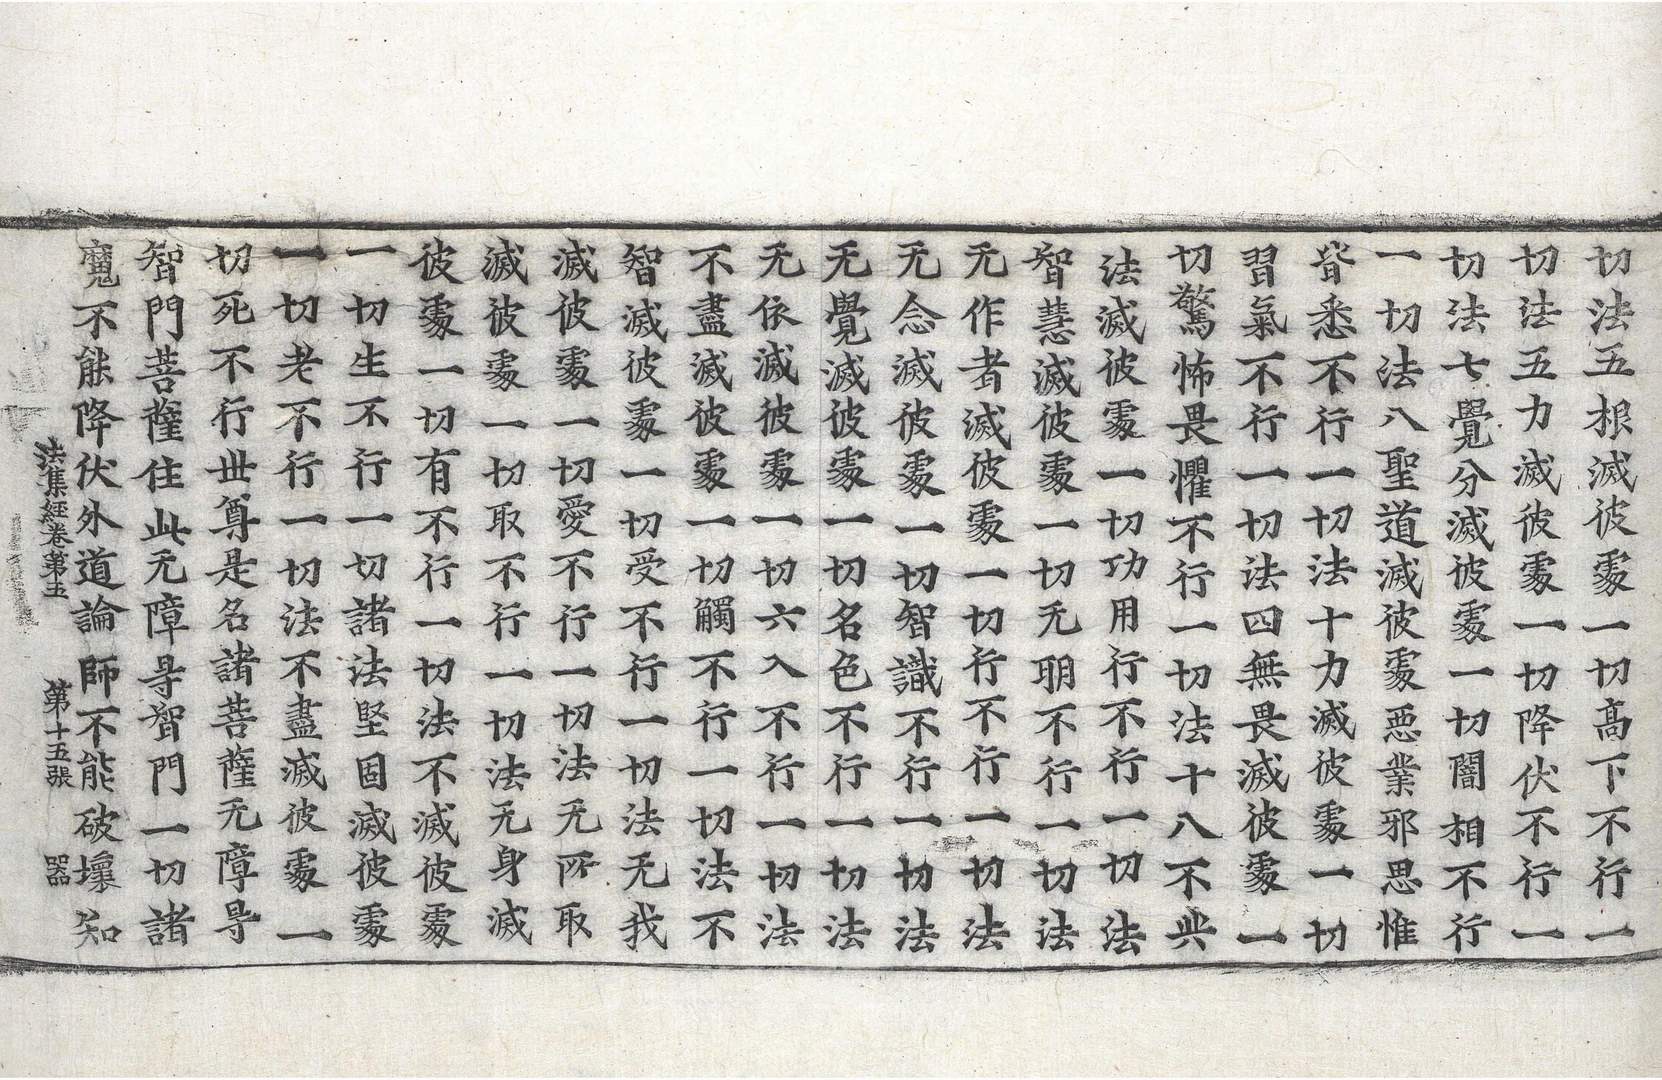 切法五根滅彼處一切高下不行一
切法五力滅彼處一切降伏不行一
切法七覺分滅彼處一切闇相不行
一切法八聖道滅彼處惡業邪思惟
皆悉不行一切法十力滅彼處一切
習氣不行一切法四無畏滅彼處一
切驚怖畏懼不行一切法十八不共
法滅彼處一切功用行不行一切法
智慧滅彼處一切无明不行一切法
无作者滅彼處一切行不行一切法
无念滅彼處一切智識不行一切法
无覺滅彼處一切名色不行一切法
无依滅彼處一切六入不行一切法
不盡滅彼處一切觸不行一切法不
智滅彼處一切受不行一切法无我
滅彼處一切愛不行一切法无所取
滅彼處一切取不行一切法无身滅
彼處一切有不行一切法不滅彼處
一切生不行一切諸法堅固滅彼處
一切老不行一切法不盡滅彼處一
切死不行世尊是名諸菩薩无障㝵
智門菩薩住此无障㝵智門一切諸
魔不能降伏外道論師不能破壞知
法集經卷第五 第十五張 器